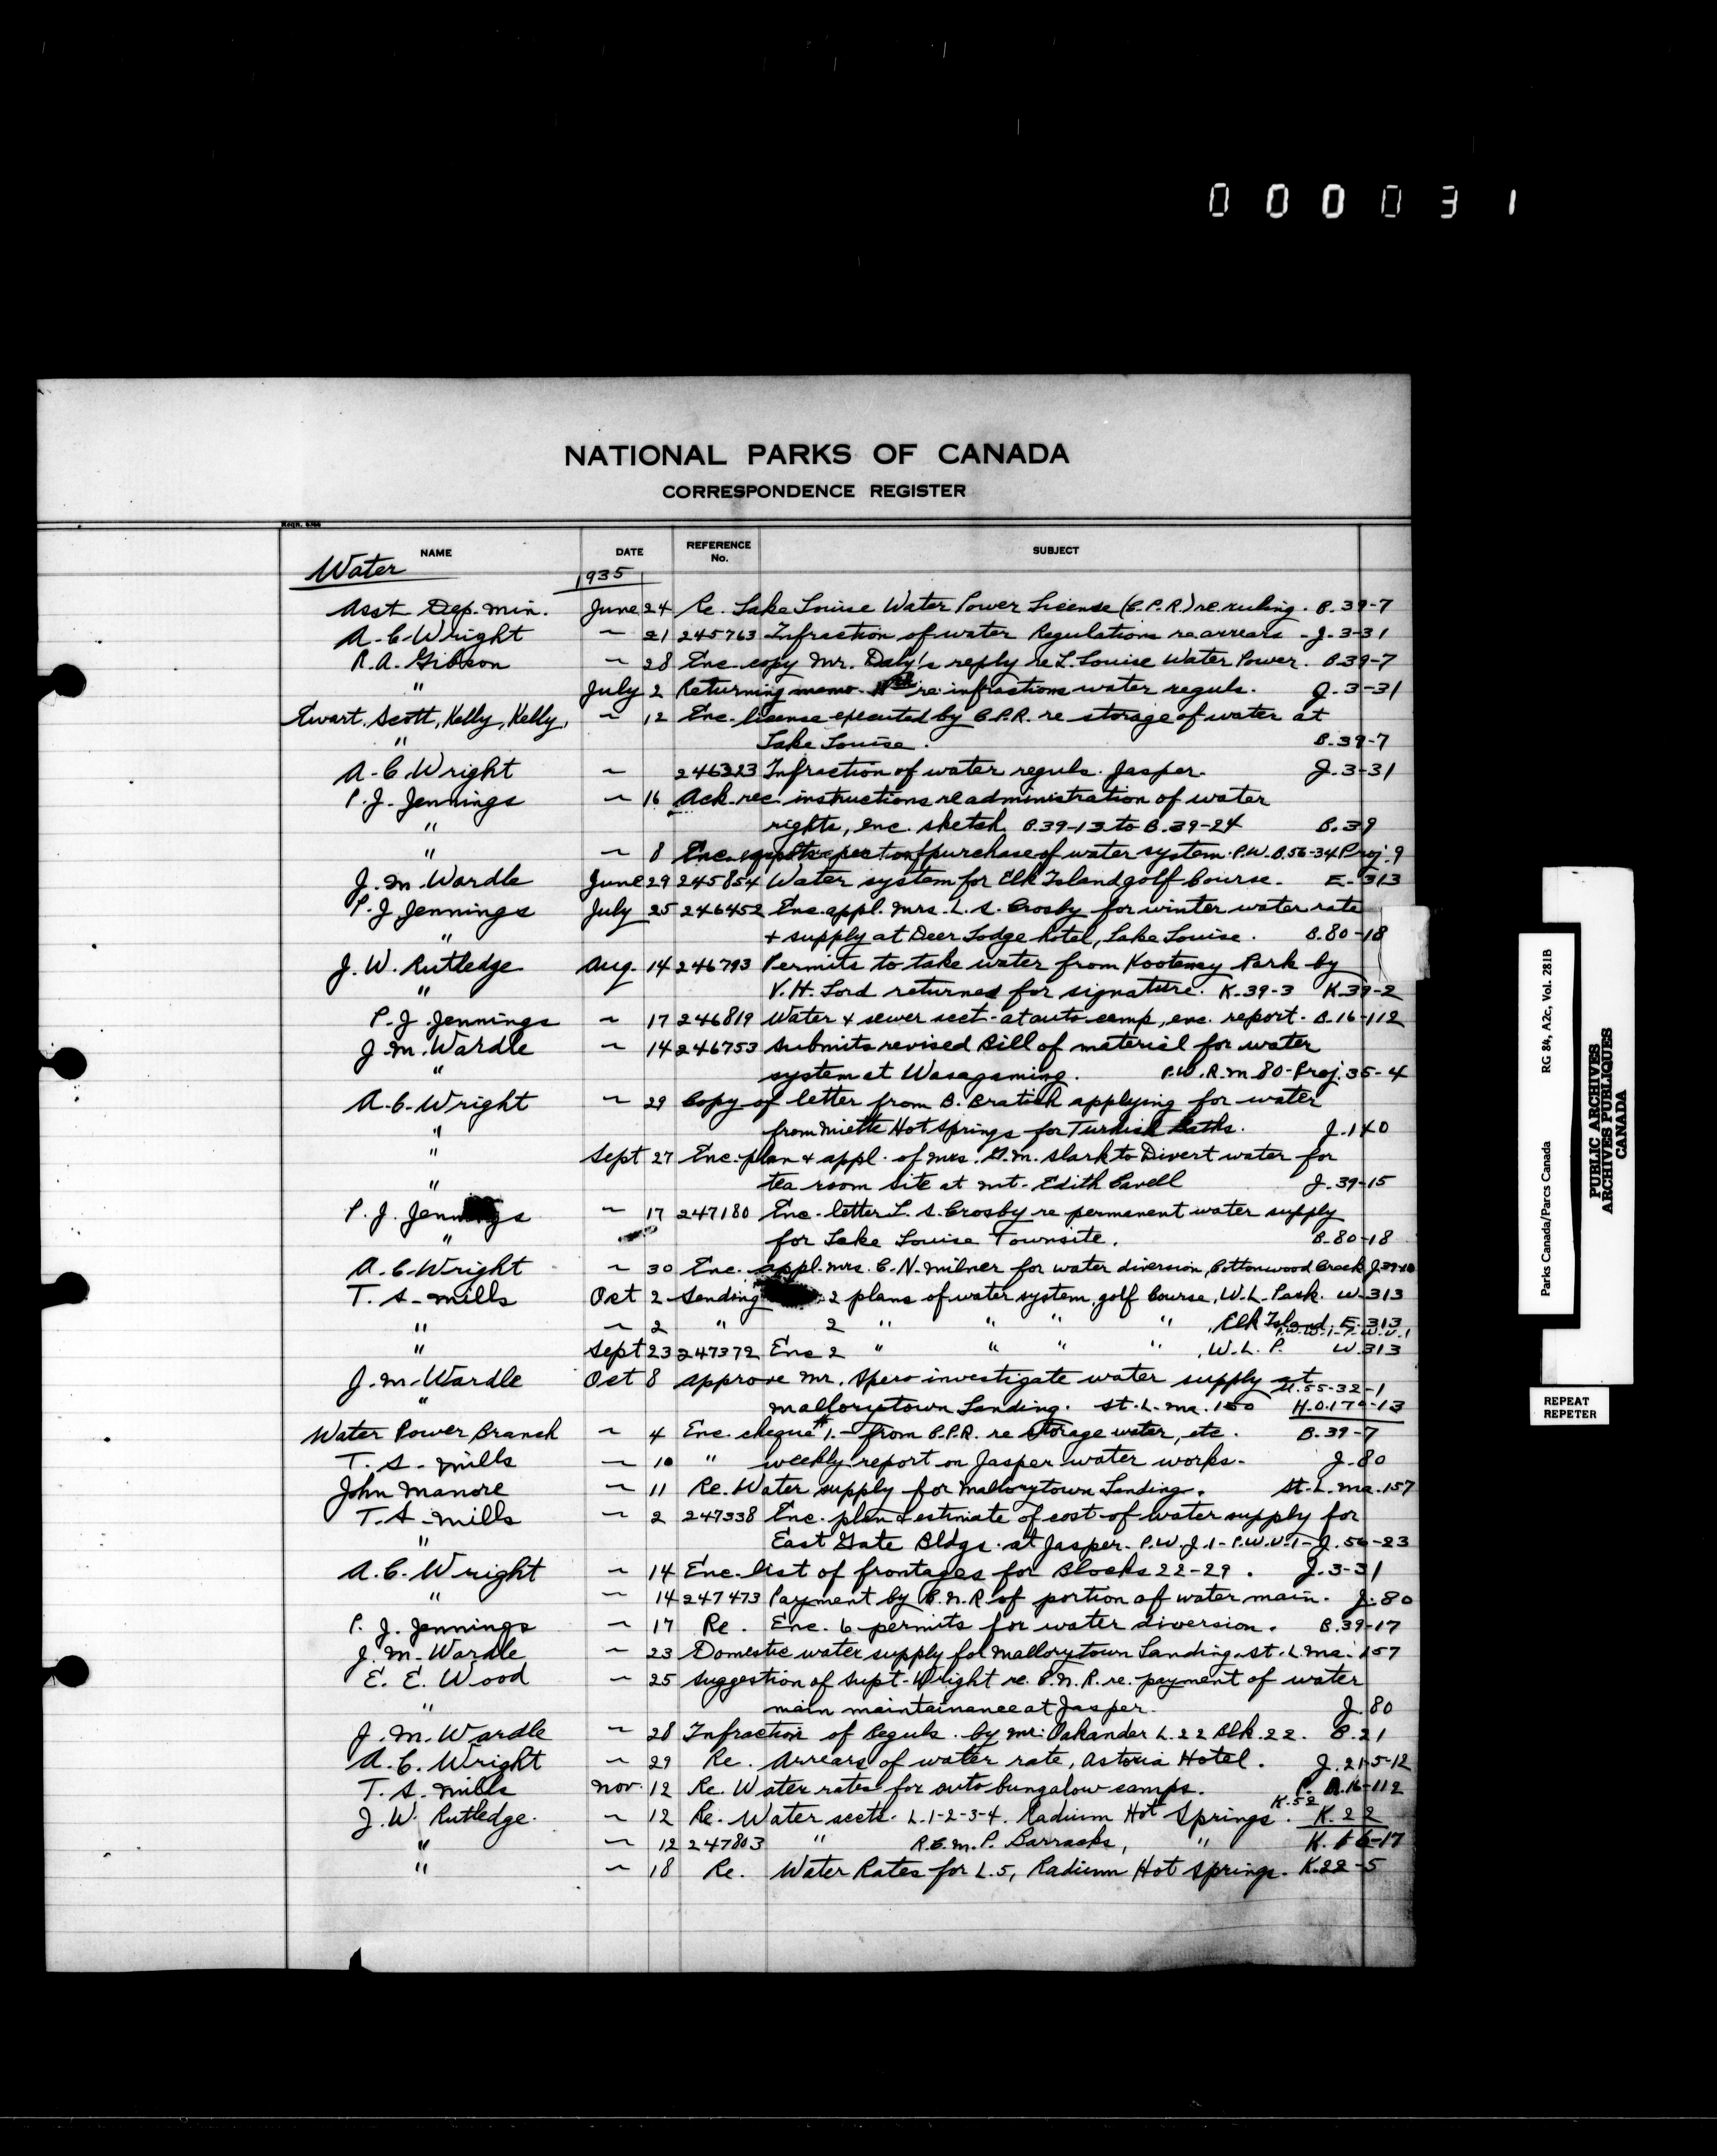 000031
NATIONAL PARKS OF CANADA
CORRESPONDENCE REGISTER
NAME DATE REFERENCE No. SUBJECT
Water 1935
Asst Dep. Min. June 24 Re. Lake Louise Water Power License (C.P.R.) re ruling. B.39-7
A.C. Wright ~ 21 245763 Infraction of water Regulations re arrears - J.3-31
R.A. Gibson ~ 28 Enc. copy Mr. Daly's reply re L. Louise Water Power. B.39-7
" July 2 Returning memo. re infractions water reguls. J.3-31
Ewart, Scott, Kelly, Kelly, ~ 12 Enc. license executed by C.P.R. re storage of water at
" Lake Louise. B.39-7
A.C. Wright ~ 246323 Infraction of water reguls. Jasper. J.3-31
P.J. Jennings ~ 16 Ack. rec. instructions re administration of water
" rights, enc. sketch. B.39-13 to B.39-24 B.39
" ~ 8 Enc. purchase of water system. P.W.B.56-34 Proj. 9
J.M. Wardle June 29 245854 Water system for Elk Island golf Course. E-313
P.J. Jennings July 25 246452 Enc. appl. Mrs. L.S. Crosby for winter water rate
" + supply at Deer Lodge hotel, Lake Louise. B.80-18
J.W. Rutledge Aug. 14 246793 Permits to take water from Kootenay Park by
" V.H. Lord returned for signature. K.39-3 K.39-2
P.J. Jennings ~ 17 246819 Water & sewer sect. at auto camp, enc. report. B.16-112
J.M. Wardle ~ 14 246753 Submits revised Bill of material for water
" system at Wasagaming. P.W.R.M.80-Proj. 35-4
A.C. Wright ~ 29 Copy of letter from B. applying for water
" from Miette Hot Springs for Turkish Baths. J.140
" Sept 27 Enc. plan & appl. of Mrs. G.M. Slark to Divert water for
" tea room site at Mt. Edith Cavell J.39-15
P.J. Jennings ~ 17 247180 Enc. letter L.S. Crosby re permanent water supply
" for Lake Louise Townsite. B.80-18
A.C. Wright ~ 30 Enc. appl. Mrs. C.N. Milner for water diversion, Cottonwood Creek
T.S. Mills Oct 2 Sending 2 plans of water system, golf Course, W.L. Park. W-313
" ~ 2 " 2 " " " " , Elk Island, E.313
" Sept 23 247372 Enc 2 " " " " , W.L.P. W.313
J.M. Wardle Oct 8 approve Mr. Spero investigate water supply at M.55-32-1
" Mallorytown Landing. St. L. Ma. 150
Water Power Branch ~ 4 Enc. cheque $1.- from C.P.R. re Storage water, etc. B.39-7
T.S. Mills ~ 10 " weekly report on Jasper water works. J.80
John Manore ~ 11 Re. Water supply for Mallorytown Landing. St. L. Ma. 157
T.S. Mills ~ 2 247338 Enc. plan & estimate of cost of water supply for
" East Gate Bldgs. at Jasper. P.W.J.1-P.W.U.1-J.56-23
A.C. Wright ~ 14 Enc. list of frontages for Blocks 22-29. J.3-31
" ~ 14 247473 Payment by C.N.R. of portion of water main. J.80
P.J. Jennings ~ 17 Re. Enc. 6 permits for water diversion. B.39-17
J.M. Wardle ~ 23 Domestic water supply for Mallorytown Landing. St. L. Ma. 157
E.E. Wood ~ 25 suggestion of Supt. Wright re. C.N.R. re. payment of water
" main maintainance at Jasper. J.80
J.M. Wardle ~ 28 Infraction of Reguls. by Mr. Oakander L.22 Blk.22. B.21
A.C. Wright ~ 29 Re. Arrears of water rate, Astoria Hotel. J.21-5-12
T.S. Mills Nov. 12 Re. Water rates for auto bungalow camps. B.16-112
J.W. Rutledge. ~ 12 Re. Water sects. L.1-2-3-4. Radium Hot Springs. K.52 K.22
" ~ 12 247803 " R.C.M.P. Barracks, " K.66-17
" ~ 18 Re. Water Rates for L.5, Radium Hot Springs. K.22-5
Parks Canada/Parcs Canada RG 84, A2c, Vol. 281B
PUBLIC ARCHIVES
ARCHIVES PUBLIQUES
CANADA
REPEAT
REPETER